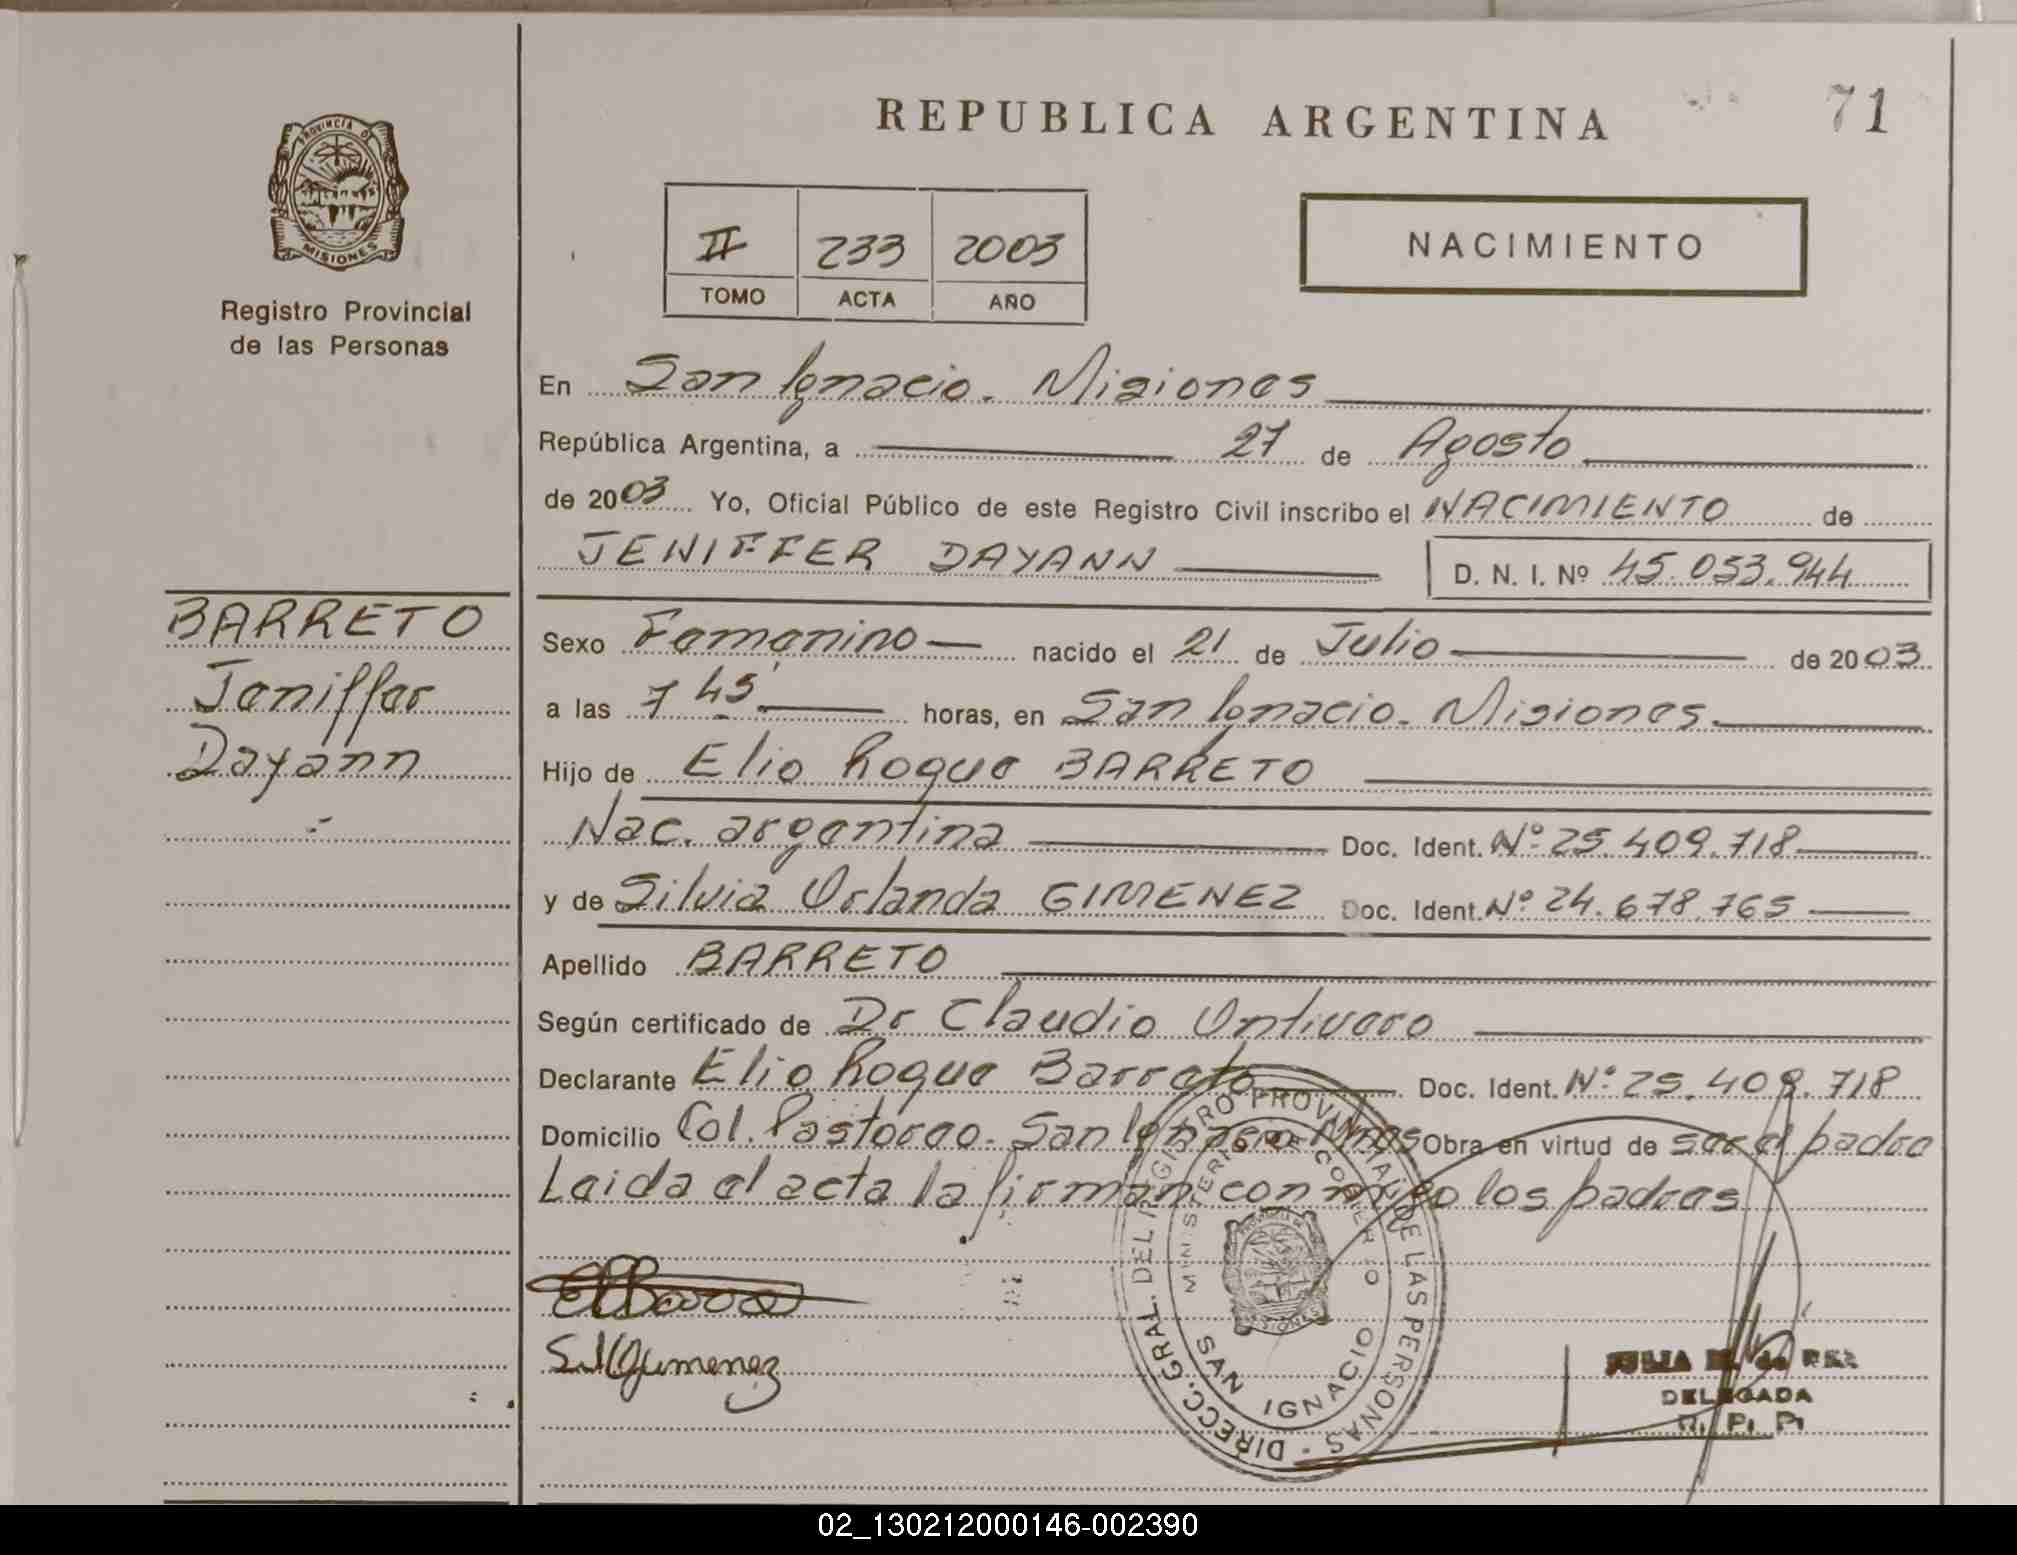 REPUBLICA ARGENTINA
71
PROVINCIA DE
MISIONES
Registro Provincial
de las Personas
II 233 2003
TOMO ACTA AÑO
NACIMIENTO
En San Ignacio. Misiones
República Argentina, a 27 de Agosto
de 2003 Yo, Oficial Público de este Registro Civil inscribo el NACIMIENTO de
JENIFFER DAYANN D. N. I. Nº 45.053.944
BARRETO
Jeniffer
Dayann
Sexo Femenino nacido el 21 de Julio de 2003
a las 7 45 horas, en San Ignacio. Misiones.
Hijo de Elio Roque BARRETO
Nac. argentina Doc. Ident. Nº 25.409.718
y de Silvia Orlanda GIMENEZ Doc. Ident. Nº 24.678.765
Apellido BARRETO
Según certificado de Dr Claudio Ontivero
Declarante Elio Roque Barreto Doc. Ident. Nº 25.409.718
Domicilio Col. Pastoreo. San Ignacio Mnes Obra en virtud de ser el padre
Leida el acta la firman conmigo los padres
DIRECC. GRAL. DEL REGISTRO PROVINCIAL DE LAS PERSONAS
MINISTERIO DE GOBIERNO
SAN IGNACIO
MISIONES
Gimenez
JULIA de
DELEGADA
R. P. P.
02_130212000146-002390